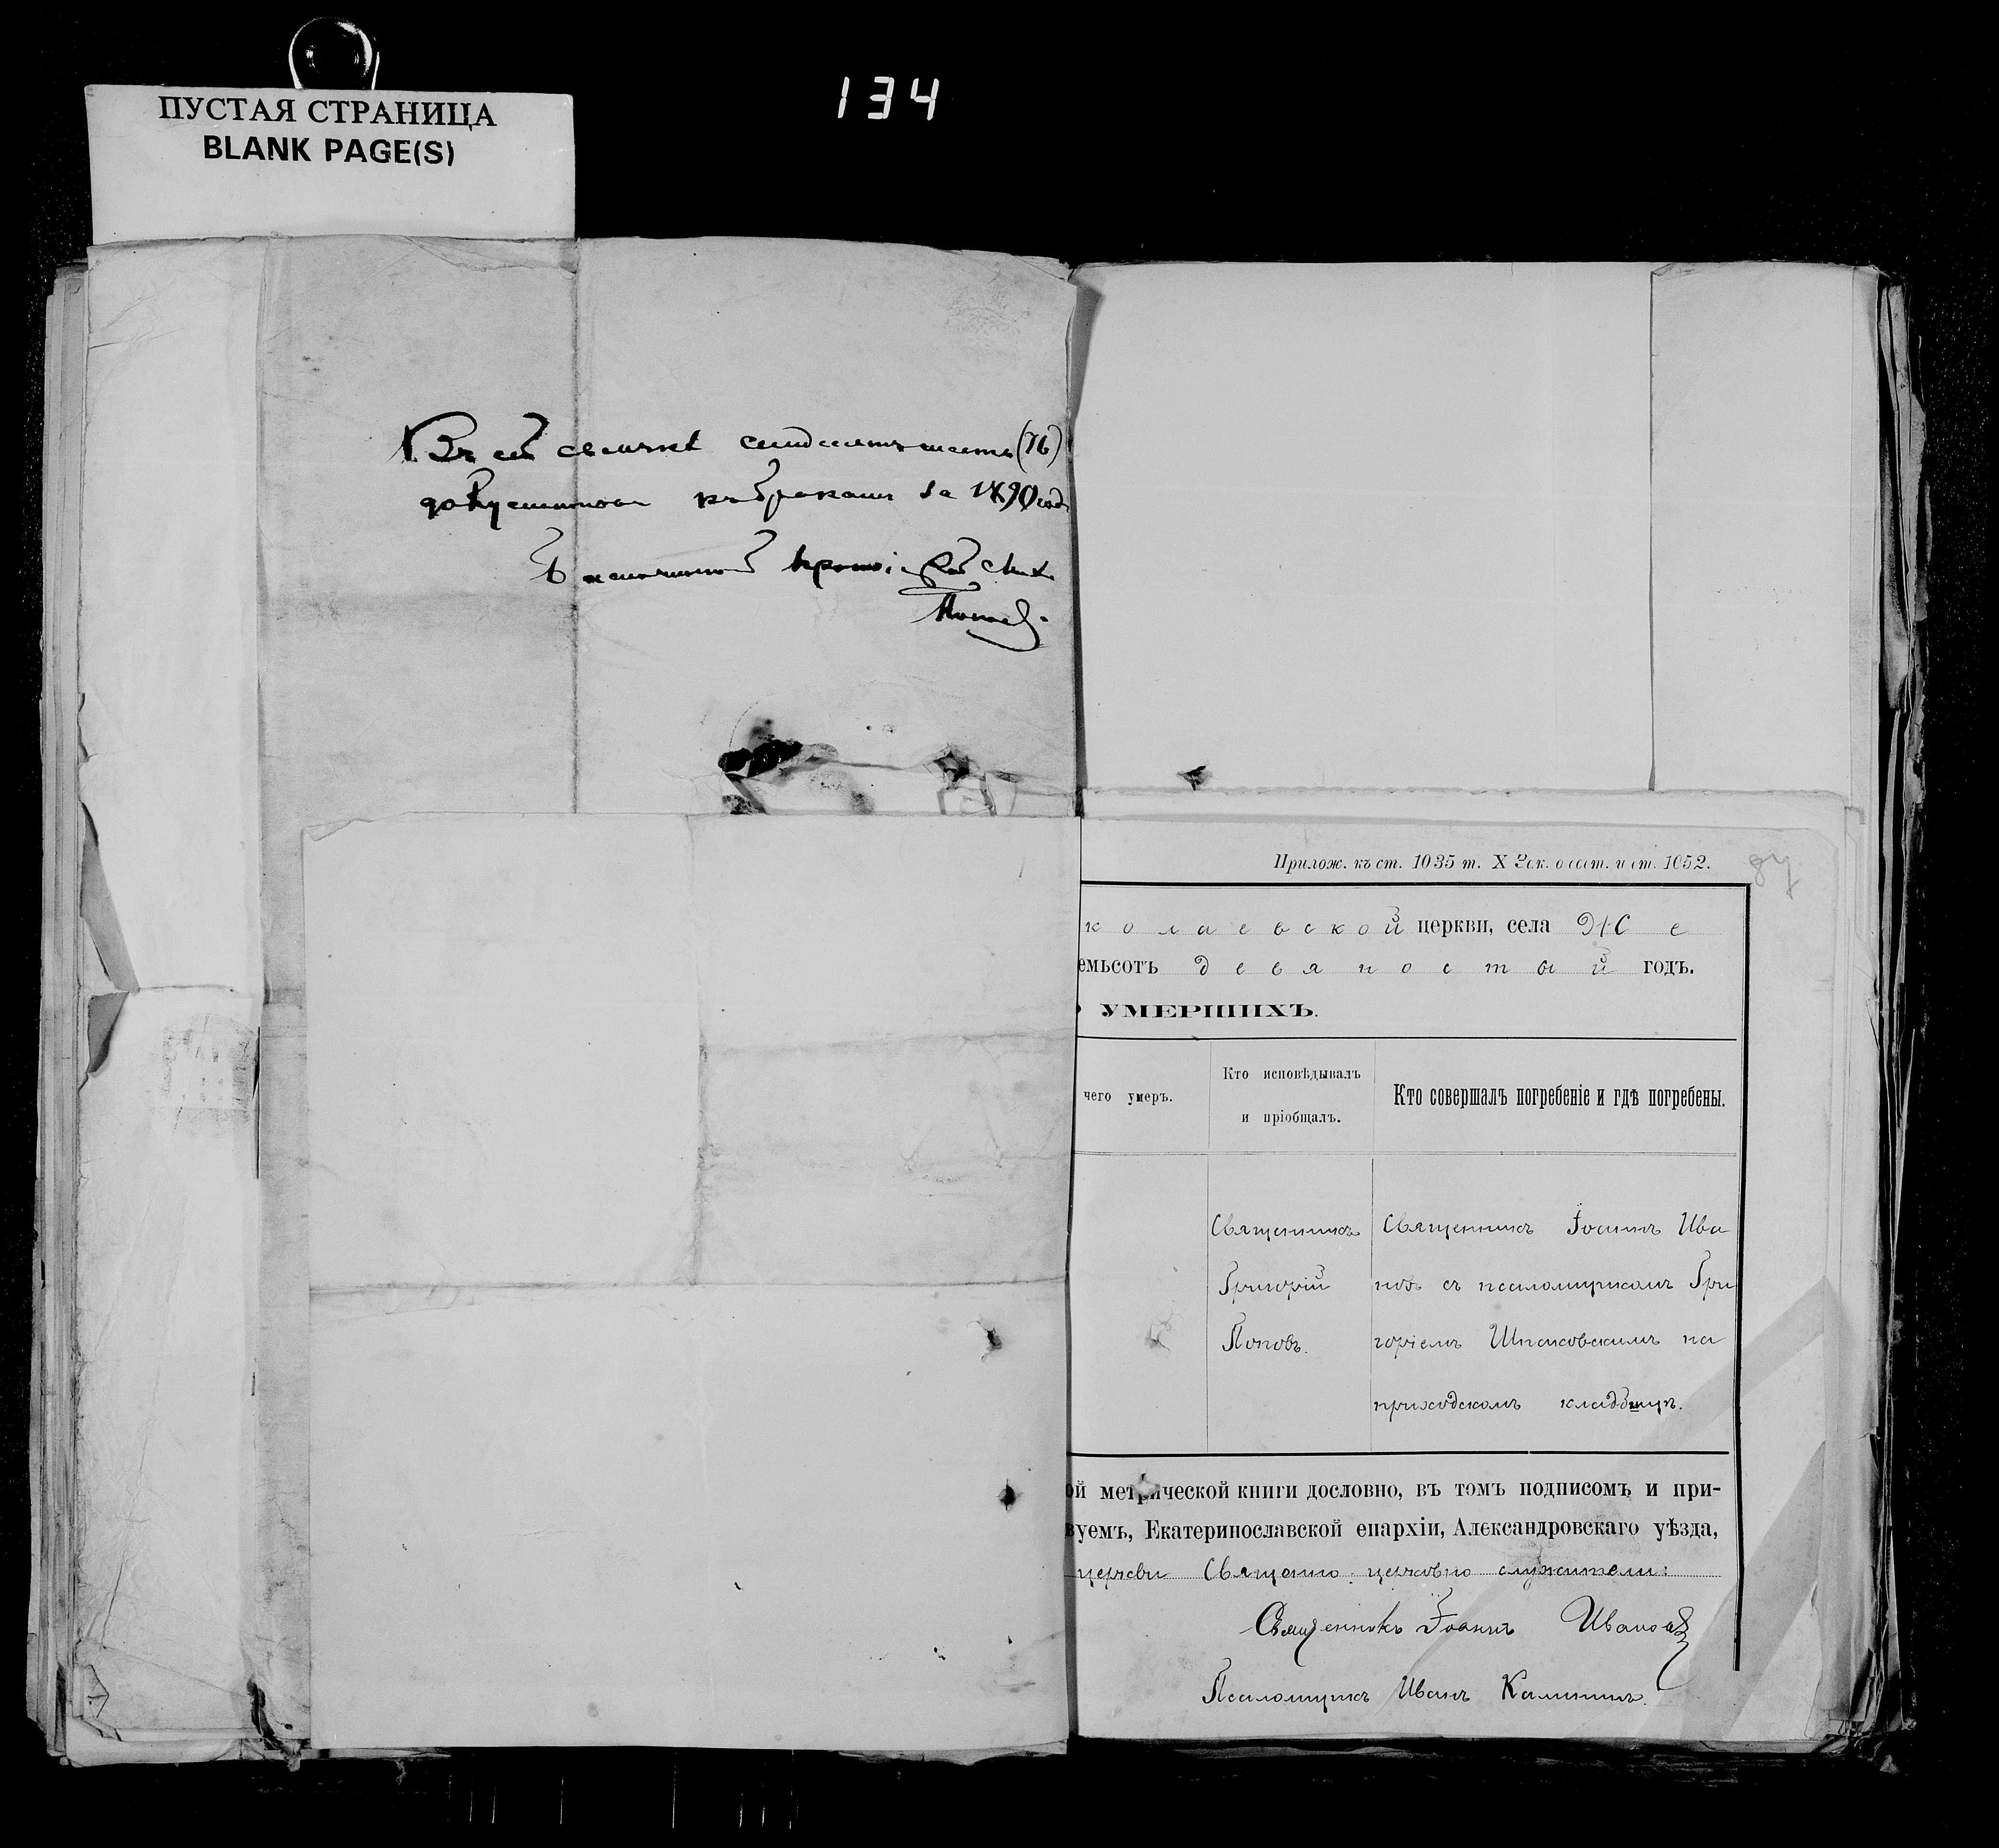 134
ПУСТАЯ СТРАНИЦА
BLANK PAGE(S)
Въ сей свѧзкѣ семдесятъ шесть (76)
документовъ къ бракамъ за 1890 годъ
Прилож. къ ст. 1035 т. X Зак. о сост. и ст. 1052.
84
колаевской церкви, села Же
емьсотъ девяностый годъ.
УМЕРШИХЪ.
чего умеръ.
Кто исповѣдывалъ
и пріобщалъ.
Кто совершалъ погребеніе и гдѣ погребены.
Священникъ
Григорій
Поповъ.
Священникъ Іоаннъ Ива
новъ съ псаломщикомъ Гри
горіемъ Шпаковскимъ на
приходскомъ кладбищѣ.
ой метрической книги дословно, въ томъ подписомъ и при-
вуемъ, Екатеринославской епархіи, Александровскаго уѣзда,
церкви Священно церковно служители:
Священникъ Іоаннъ Ивановъ
Псаломщикъ Иванъ Калининъ.